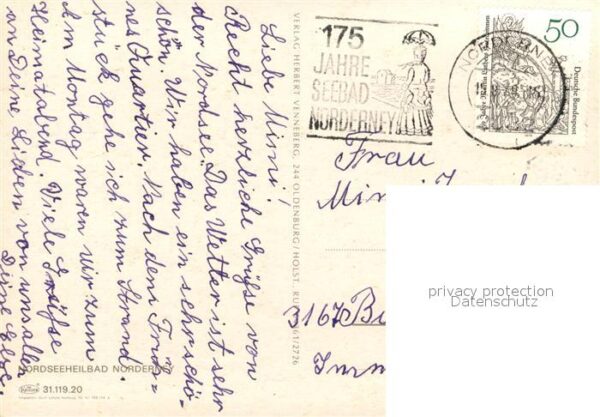 Liebe Mimi!
Recht herzliche Grüße von
der Nordsee. Das Wetter ist sehr
schön. Wir haben ein sehr schö-
nes Quartier. Nach dem Früh-
stück gehe ich zum Strand.
Am Montag waren wir zum
Heimatabend. Viele Grüße
an Deine Lieben von uns allen
Deine
NORDSEEHEILBAD NORDERNEY
31.119.20
VERLAG HERBERT VENNEBERG, 244 OLDENBURG/HOLST. RUF
175
JAHRE
SEEBAD
NORDERNEY
NORDERNEY
50
Deutsche Bundespost
Frau
3167
privacy protection
Datenschutz